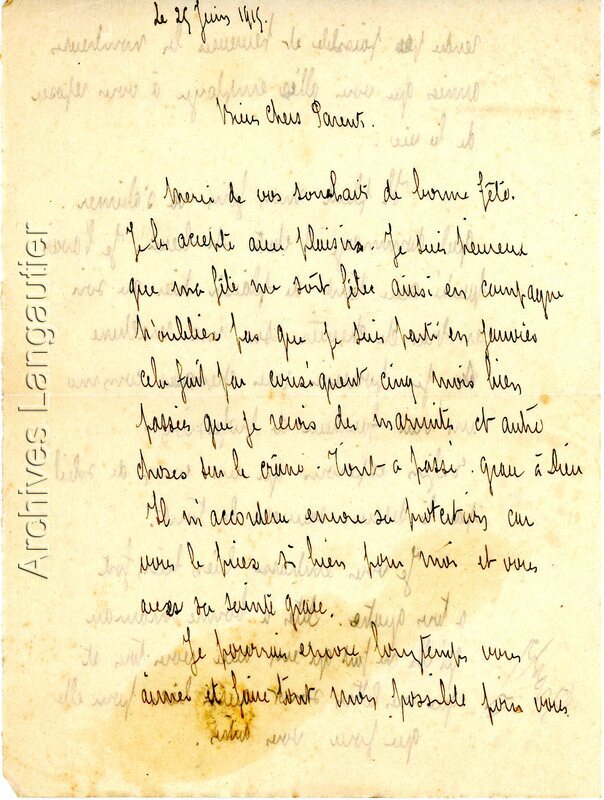 Le 25 Juin 1915.
Biens Chers Parents.
Merci de vos souhaits de bonne fête.
Je les accepte avec plaisirs. Je suis heureux
que ma fête me soit fêtée ainsi en campagne
N'oubliez pas que je suis parti en Janvier
cela fait par conséquent cinq mois bien
passés que je reçois des marmites et autre
choses sur le crâne. Tout a passé. grace à Dieu
Il m'accordera encore sa protection car
vous le priez si bien pour moi et vous
avez sa sainte grace.
Je pourrais encore longtemps vous
aimer et faire tout mon possible pour vous
Archives Langautier